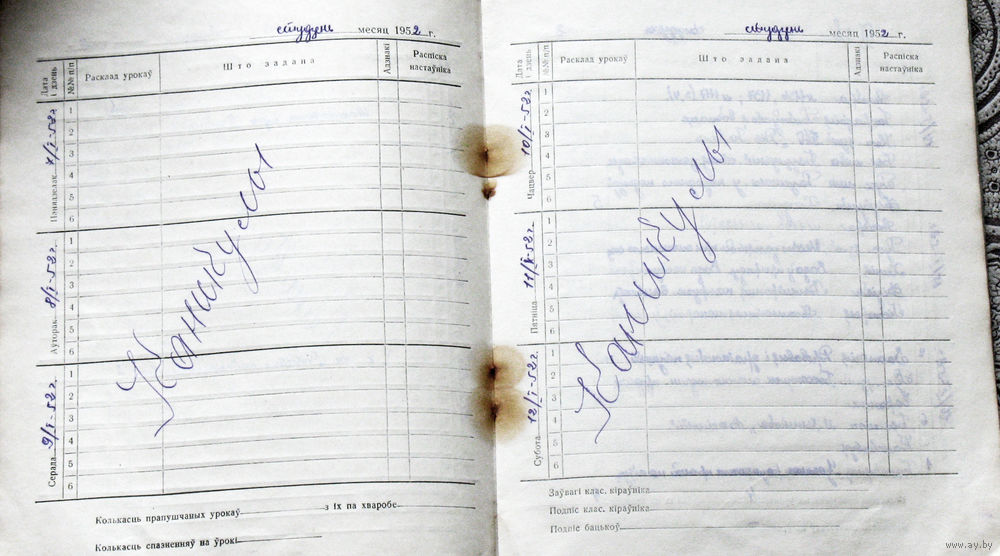 студзень месяц 1952 г.
Дата і дзень №№ п/п Расклад урокаў Што задана Адзнакі Распіска настаўніка
Панядзелак 7/I-52 г. 1 2 3 4 5 6
Аўторак 8/I-52 г. 1 2 3 4 5 6
Серада 9/I-52 г. 1 2 3 4 5 6
Каникулы
Колькасць прапушчаных урокаў з іх па хваробе
Колькасць спазненняў на ўрокі
студзень месяц 1952 г.
Дата і дзень №№ п/п Расклад урокаў Што задана Адзнакі Распіска настаўніка
Чацвер 10/I-52 г. 1 2 3 4 5 6
Пятніца 11/I-52 г. 1 2 3 4 5 6
Субота 12/I-52 г. 1 2 3 4 5 6
Каникулы
Заўвагі клас. кіраўніка
Подпіс клас. кіраўніка
Подпіс бацькоў
www.ay.by